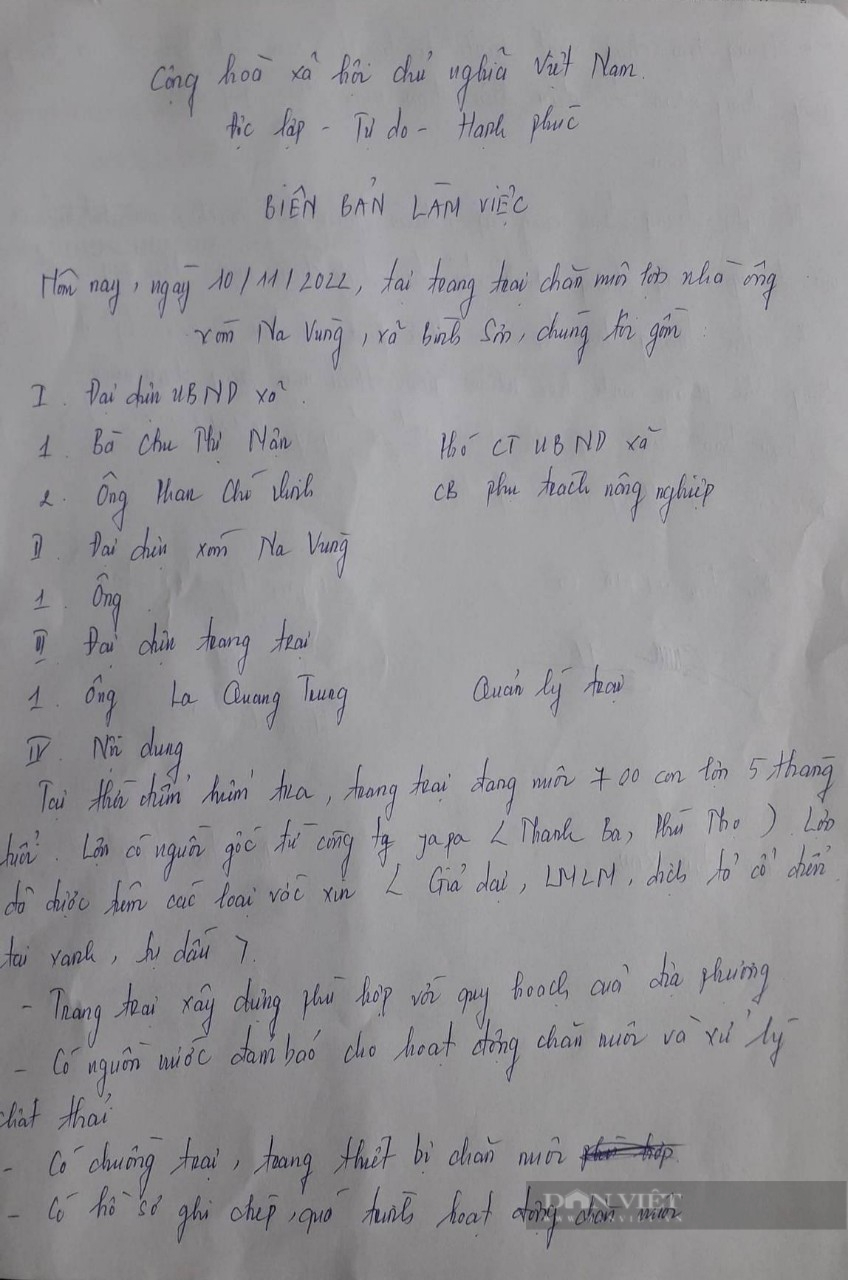 Cộng hoà xã hội chủ nghĩa Việt Nam.
Độc lập - Tự do - Hạnh phúc
BIÊN BẢN LÀM VIỆC
Hôm nay, ngày 10/11/2022, tại trang trại chăn nuôi lợn nhà ông
xóm Na Vùng, xã Bình Sơn, chúng tôi gồm:
I. Đại diện UBND xã.
1. Bà Chu Thị Mận Phó CT UBND xã
2. Ông Phan Chí Vinh CB phụ trách nông nghiệp
II. Đại diện xóm Na Vùng
1. Ông
III. Đại diện trang trại
1. Ông La Quang Trung Quản lý trại
IV. Nội dung
Tại thời điểm kiểm tra, trang trại đang nuôi 700 con lợn 5 tháng
tuổi. Lợn có nguồn gốc từ công ty Japa (Thanh Ba, Phú Thọ) Lợn
đã được tiêm các loại vắc xin (Giả dại, LMLM, dịch tả cổ điển
tai xanh, tụ dấu).
- Trang trại xây dựng phù hợp với quy hoạch của địa phương
- Có nguồn nước đảm bảo cho hoạt động chăn nuôi và xử lý
chất thải
- Có chuồng trại, trang thiết bị chăn nuôi phù hợp
- Có hồ sơ ghi chép, quá trình hoạt động chăn nuôi
DÂN VIỆT